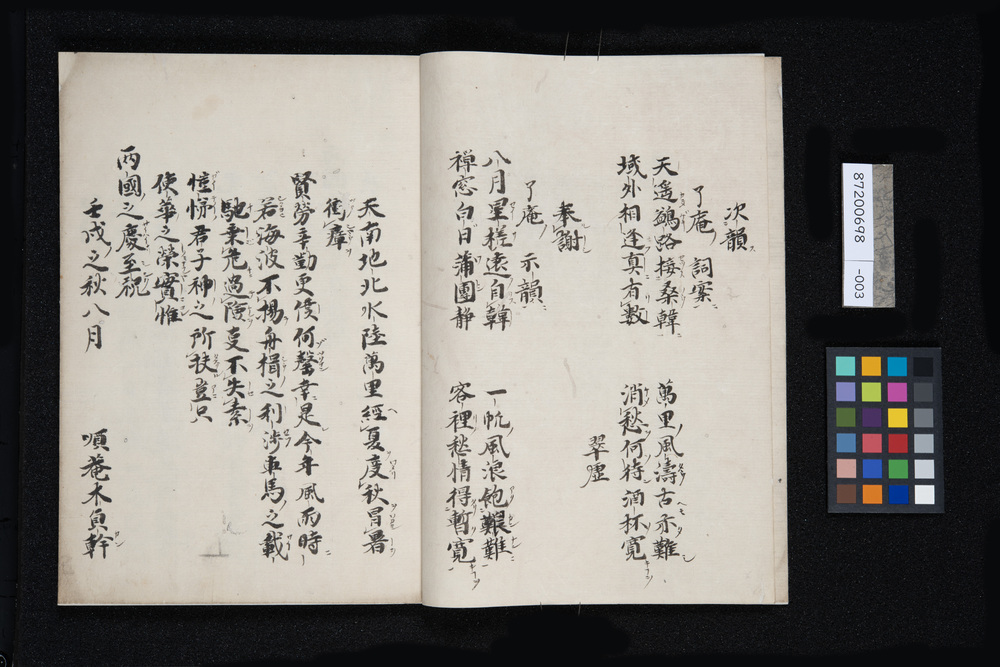 次韻
了庵 詞案
天遥鷁路接桑韓 萬里風濤古亦難
域外相逢真有数 消愁何待酒杯寛
翠虚
奉謝
了庵 示韻
八月星槎遠自韓 一帆風浪飽艱難
禅窓白日蒲團静 客裡愁情得暫寛
天南地北水陸萬里經夏度秋冒暑
衝瘴
賢勞辛勤更僕何罄幸是今年風雨時
若海波不揚舟楫之利渉車馬之載
馳乗危過険支不失素
愷悌君子神之所扶豈只
使華之榮實惟
両國之慶至祝
壬戌之秋八月 順菴木貞幹
87200698 -003